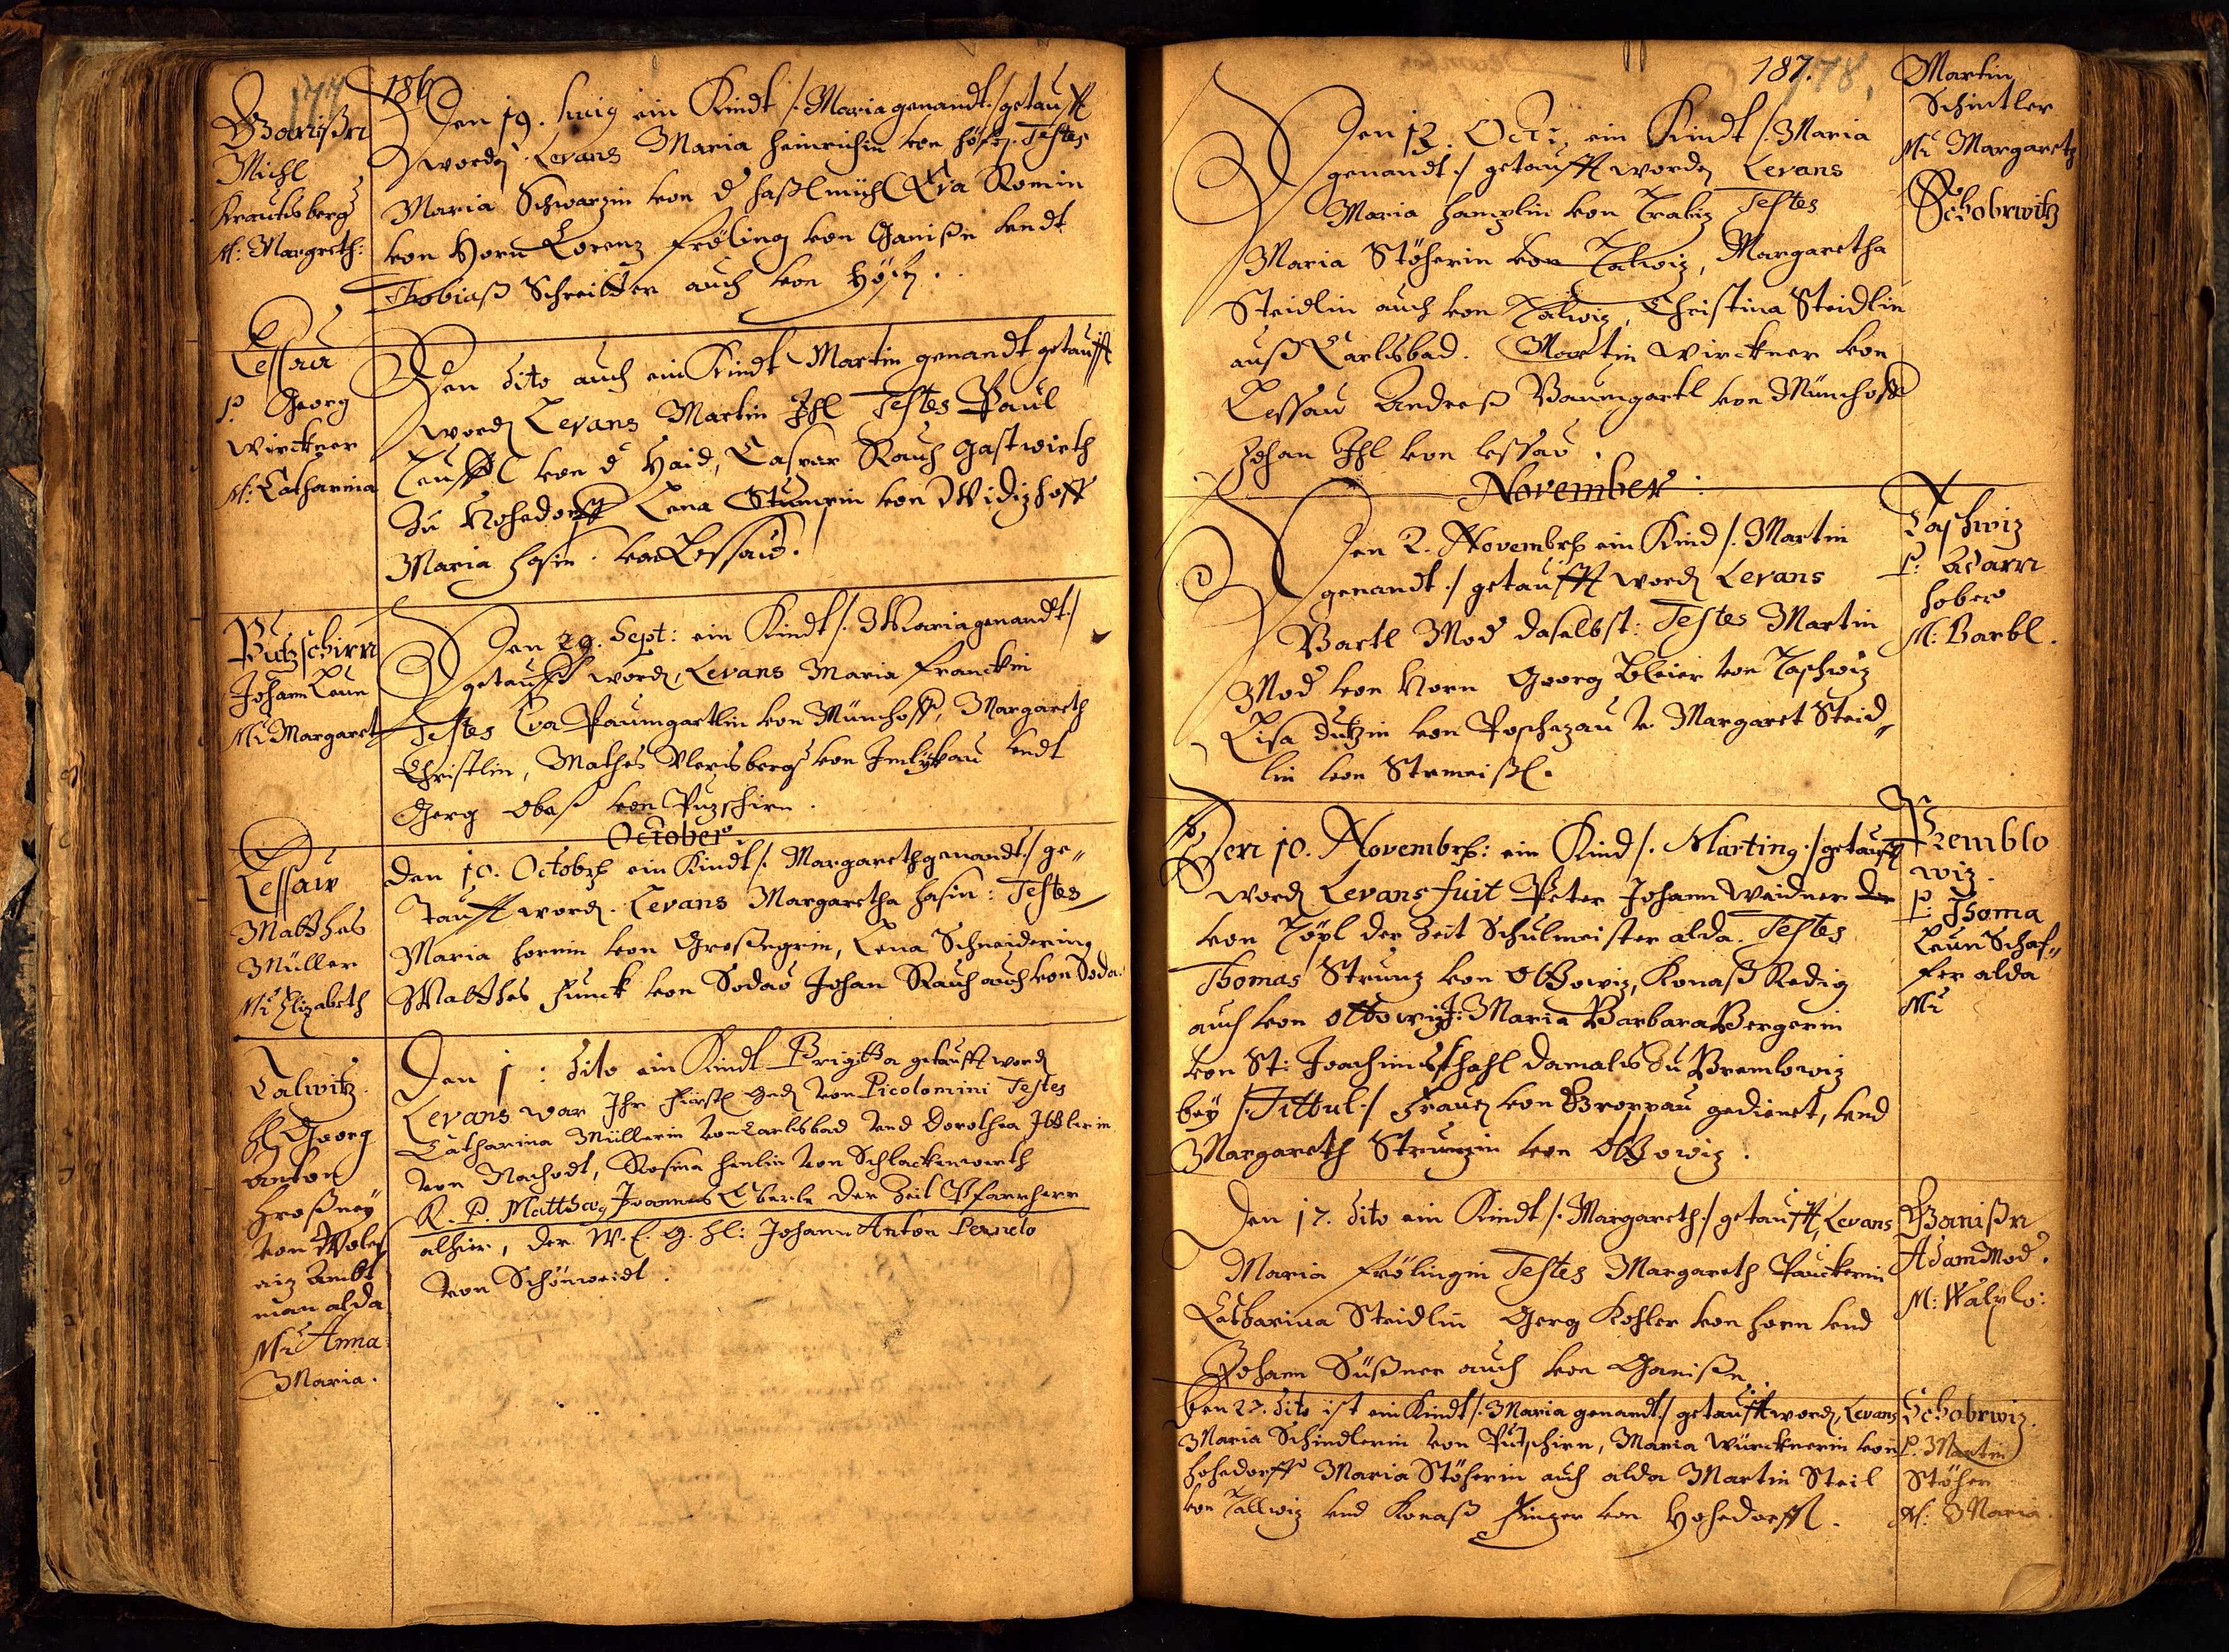 177
186
Ganißn
Michl
Krautsberg
M: Margreth:
Den 19. huig ein Kindt /: Maria genandt :/ getaufft
worden Levans Maria Heinrichin von Höfen. Testes
Maria Schwarzin von d Haßlmühl Eva Romin
von Horn Lorenz Fröling von Ganißn vndt
Thobiaß Schreitter auch von Höfen.
Lessau
P. Georg
Wirckner
M: Catharina
Den dito auch ein Kindt Martin genandt getaufft
worden Levans Martin Ihl Testes Paul
Teuffl von d Haid, Caspar Rauch Gastwirth
zu Hohedorff Lena Stumpin von Widizhoff
Maria Hasin von Lessau.
Putzschirn
Johann Leun
M: Margareth
Den 29. Sept: ein Kindt /: Maria genandt :/
getaufft worden, Levans Maria Franckin
Testes Eva Paumgartlin von Münchoff, Margareth
Christlin, Mathes Ulersberg von vndt
Gerg Obaß von Puzschirn.
October.
Lessaw
Matthes
Müller
M: Elizabeth
Den 10. Octobr: ein Kindt /: Margareth genandt :/ ge„
taufft worden. Levans Margaretha Hasin: Testes
Maria Hornin von Großngrin, Lena Schneidering
Matthes Funck von Sodau Johan Rauch auch von Soda.
Talwitz.
H: Georg
Anton
Großney
von
Ambt
man alda
M: Anna
Maria.
Den 1 : dito ein Kindt Brigitta getaufft worden
Levans war Ihr Fürstl Gnd. von Picolomini Testes
Catharina Müllerin von Carlsbad vnd Dorothea Ittlerin
von Nachodt, Rosina Henlin von Schlackenwerth
R. P. Matthaeus Joannes Eberle der Zeit Pfarrherr
alhier, der W. E. G. H: Johann Anton
von Schönweidt.
187.
178.
Martin
Schintler
M: Margareth
Schobrwitz
Den 13. Oct: ein Kindt /: Maria
genandt :/ getaufft worden Levans
Maria Hamplin von Trabiz Testes
Maria Stöherin von Talwiz, Margaretha
Steidlin auch von Talwiz, Christina Steidlin
auß Carlsbad. Martin Wirckner von
Lessau Andreß Paumgartl von Münchoff
Johan Ihl von Lessau.
November:
Taschwiz
P: Adam
Hober
M: Barbl.
Den 2. Novembr: ein Kind /: Martin
genandt :/ getaufft worden Levans
Bartl Mod daselbst: Testes Martin
Mod von Horn Georg Bleier von Taschwiz
Lisa Dutzin von Poschezau v. Margaret Steid„
lin von Stemeißl.
Premblo
wiz.
P: Thoma
Leun Schaf„
fer alda
M:
Den 10. Novembr: ein Kind /: Marting :/ getaufft
worden Levans fuit Peter Johann Weidner
von Töpl der Zeit Schulmeister alda. Testes
Thomas Strunz von Ottowiz, Konaß Redig
auch von Ottowiz: J: Maria Barbara Bergerin
von St: Joachimsthahl damals zu Premlowiz
bey /: Tittul :/ Frauen von Broppau gedienet, vnd
Margareth Strunzin von Ottowiz.
Ganißn
Adam Mod.
M: Walpl:
Den 17. dito ein Kindt /: Margareth :/ getaufft, Levans
Maria Frölingin Testes Margareth Peuckerin
Catharina Steidlin Gerg Kohler von Horn vnd
Johann Süßner auch von Ganißn.
Schobrwiz.
P. Martin
Stöher
M: Maria.
Den 27. dito ist ein Kindt /: Maria genandt :/ getaufft worden, Levans
Maria Schindlerin von Putschirn, Maria Würcknerin von
Hohedorff Maria Stöherin auch alda Martin Steil
von Tallwiz vnd Konaß Finger von Hohedorff.